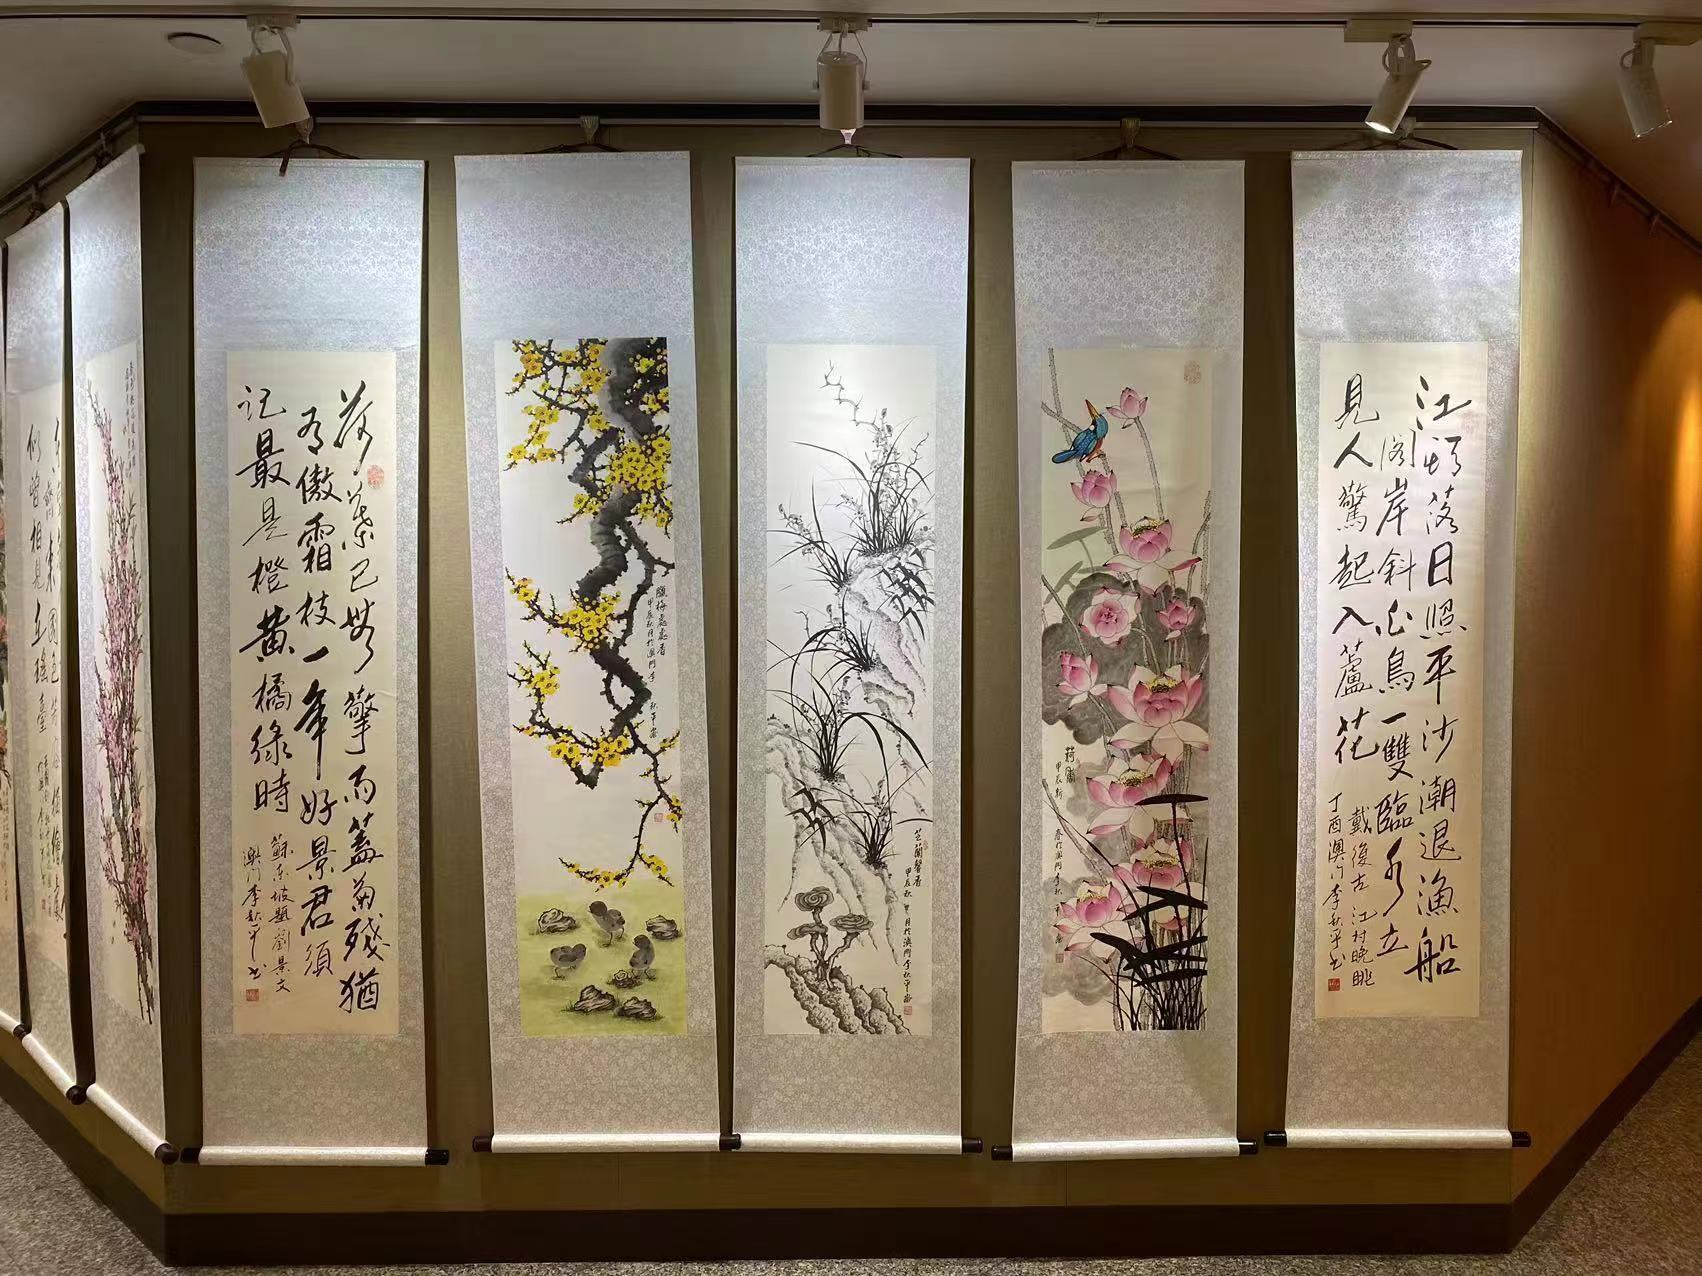 似曾相見立瑤臺
荷葉已無擎雨蓋菊殘猶
有傲霜枝一年好景君須
記最是橙黃橘綠時
蘇東坡題劉景文
澳門李秋平書
臘梅處處香
甲辰秋月於澳門李秋平畫
芝蘭馨香
甲辰秋月於澳門李秋平畫
甲辰新春於澳門李秋平畫
江頭落日照平沙潮退漁船
閣岸斜白鳥一雙臨水立
見人驚起入蘆花
戴復古江村晚眺
丁酉澳門李秋平書